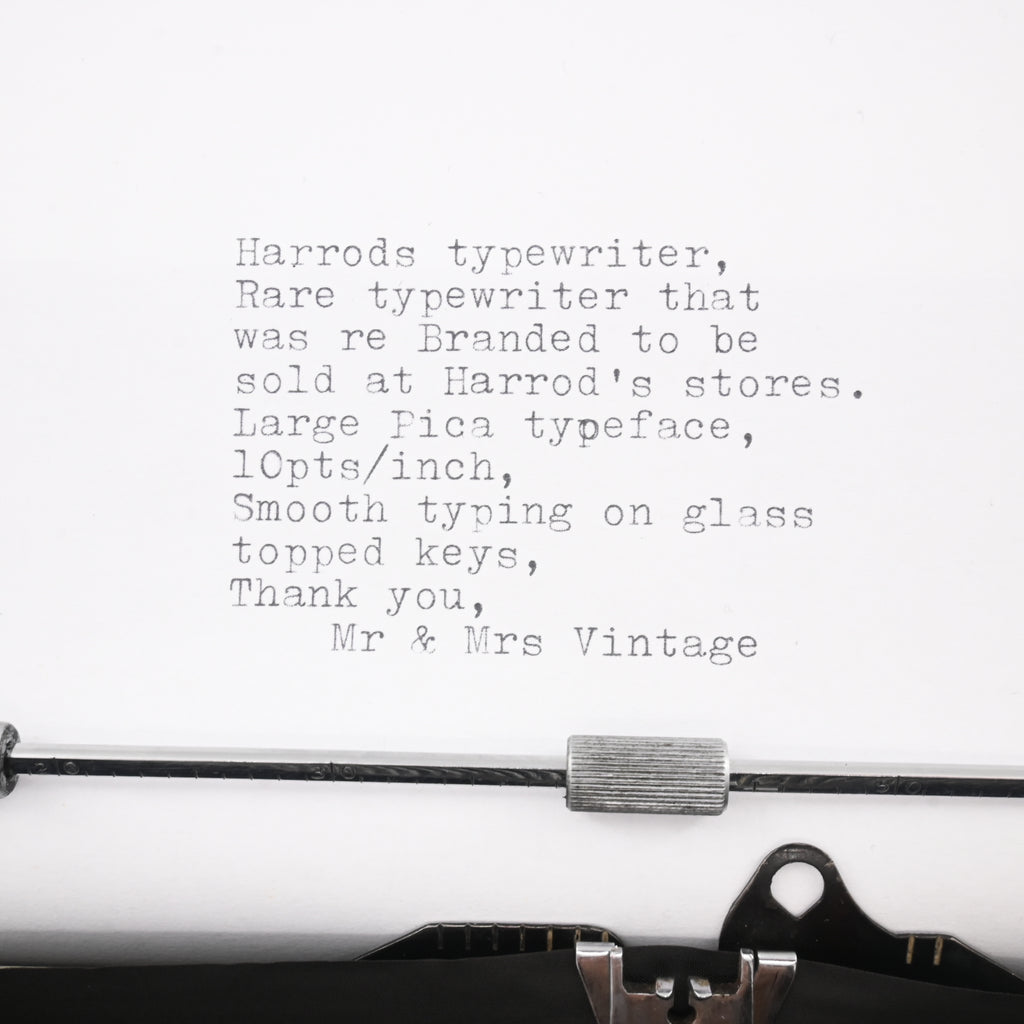 Harrods typewriter,
Rare typewriter that
was re Branded to be
sold at Harrod's stores.
Large Pica typeface,
10pts/inch,
Smooth typing on glass
topped keys,
Thank you,
Mr & Mrs Vintage